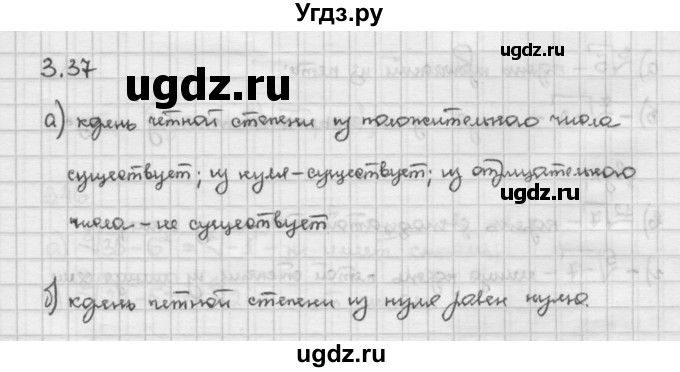 Угдз.ру
3.37
ugdz.ru
а) корень чётной степени из положительного числа
существует; из нуля - существует; из отрицательного
ugdz.ru
числа - не существует
ugdz.ru
б) корень четной степени из нуля равен нулю.
ugdz.ru